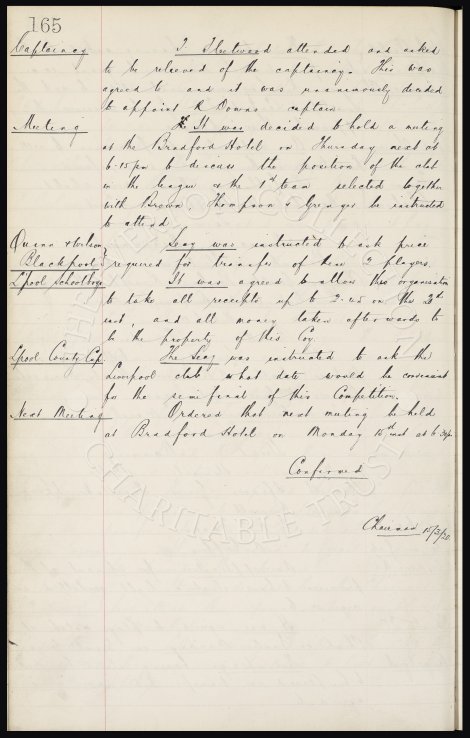 165
Captaincy T Fleetwood attended and asked
to be relieved of the captaincy. This was
agreed to and it was unanimously decided
to appoint R Downs captain.
Meeting It was decided to hold a meeting
at the Bradford Hotel on Thursday next at
6-15 pm to discuss the position of the club
in the league & the 1st team selected together
with Brown, Thompson & Grenyer be instructed
to attend
Quinn & Wilson Secy was instructed to ask price
Blackpool required for transfer of these 2 players.
Lpool Schoolboys It was agreed to allow this organisation
to take all receipts up to 2-45 on the
inst, and all money taken afterwards to
be the property of this Coy.
Lpool County Cup The Secy was instructed to ask the
Liverpool club what date would be convenient
for the semi final of this Competition.
Next Meeting Ordered that next meeting be held
at Bradford Hotel on Monday 15th inst at 6-30pm
Confirmed
Chairman 15/3/20
HERITAGE COLLECTION
CHARITABLE TRUST